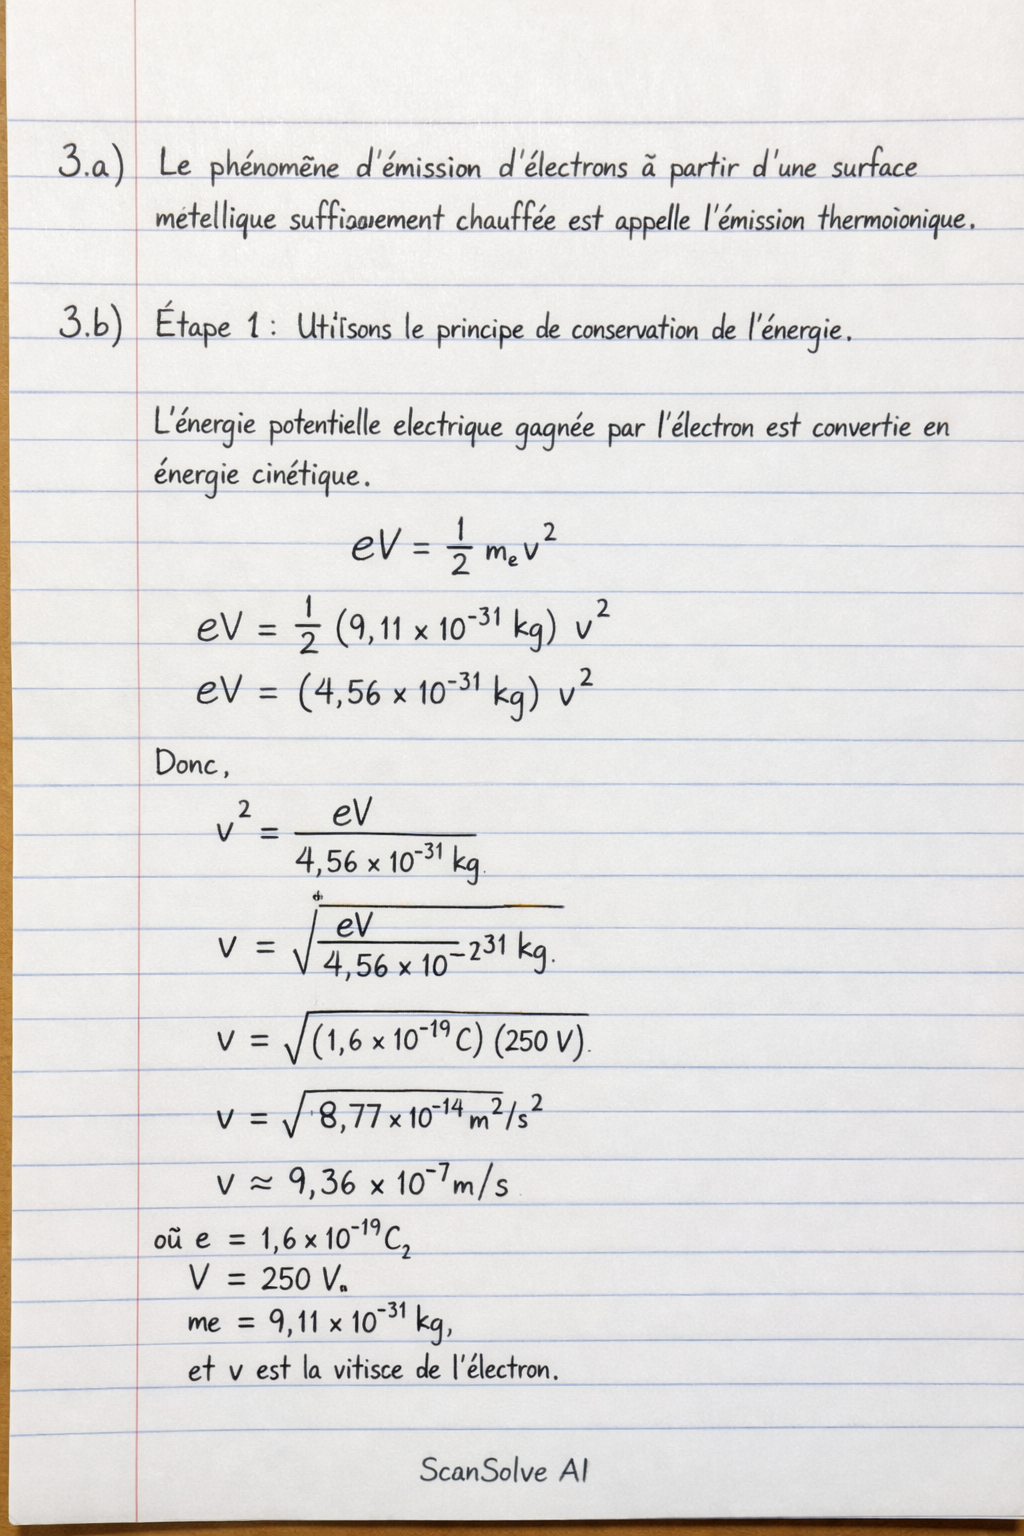 3.a) Le phénomẽne d'émission d'électrons ă partir d'une surface
métellique suffisamement chauffée est appelle l'émission thermoionique.
3.b) Étape 1 : Utilisons le principe de conservation de l'énergie.
L'énergie potentielle electrique gagnée par l'électron est convertie en
énergie cinétique.
eV = 1/2 mₑv²
eV = 1/2 (9,11 × 10⁻³¹ kg) v²
eV = (4,56 × 10⁻³¹ kg) v²
Donc,
v² = eV / 4,56 × 10⁻³¹ kg.
v = √(eV / 4,56 × 10⁻²³¹ kg.)
v = √(1,6 × 10⁻¹⁹ C) (250 V).
v = √8,77 × 10⁻¹⁴ m²/s²
v ≈ 9,36 × 10⁻⁷ m/s
oũ e = 1,6 × 10⁻¹⁹ C₂
V = 250 V.
me = 9,11 × 10⁻³¹ kg,
et v est la vitisce de l'électron.
ScanSolve AI